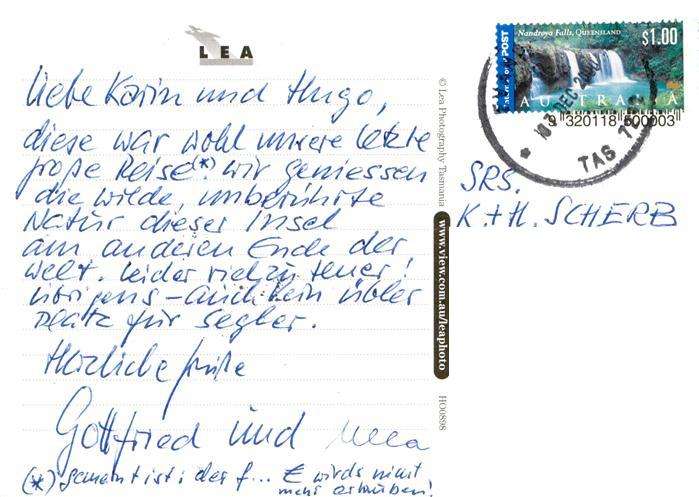 LEA
Liebe Karin und Hugo,
diese war wohl unsere letzte
große Reise(*). Wir geniessen
die wilde, unberührte
Natur dieser Insel
am anderen Ende der
Welt. Leider viel zu teuer!
Übrigens – auch kein übler
Platz für Segler.
Herzliche Grüße
Gottfried und
(*) gemeint ist: der f... € wirds nicht
mehr erlauben!
© Lea Photography Tasmania
www.view.com.au/leaphoto
HO0898
Nandroya Falls, QUEENSLAND
$1.00
POST
AUSTRALIA
9 320118 600003
DEC
TAS
SRS.
K. + H. SCHERB